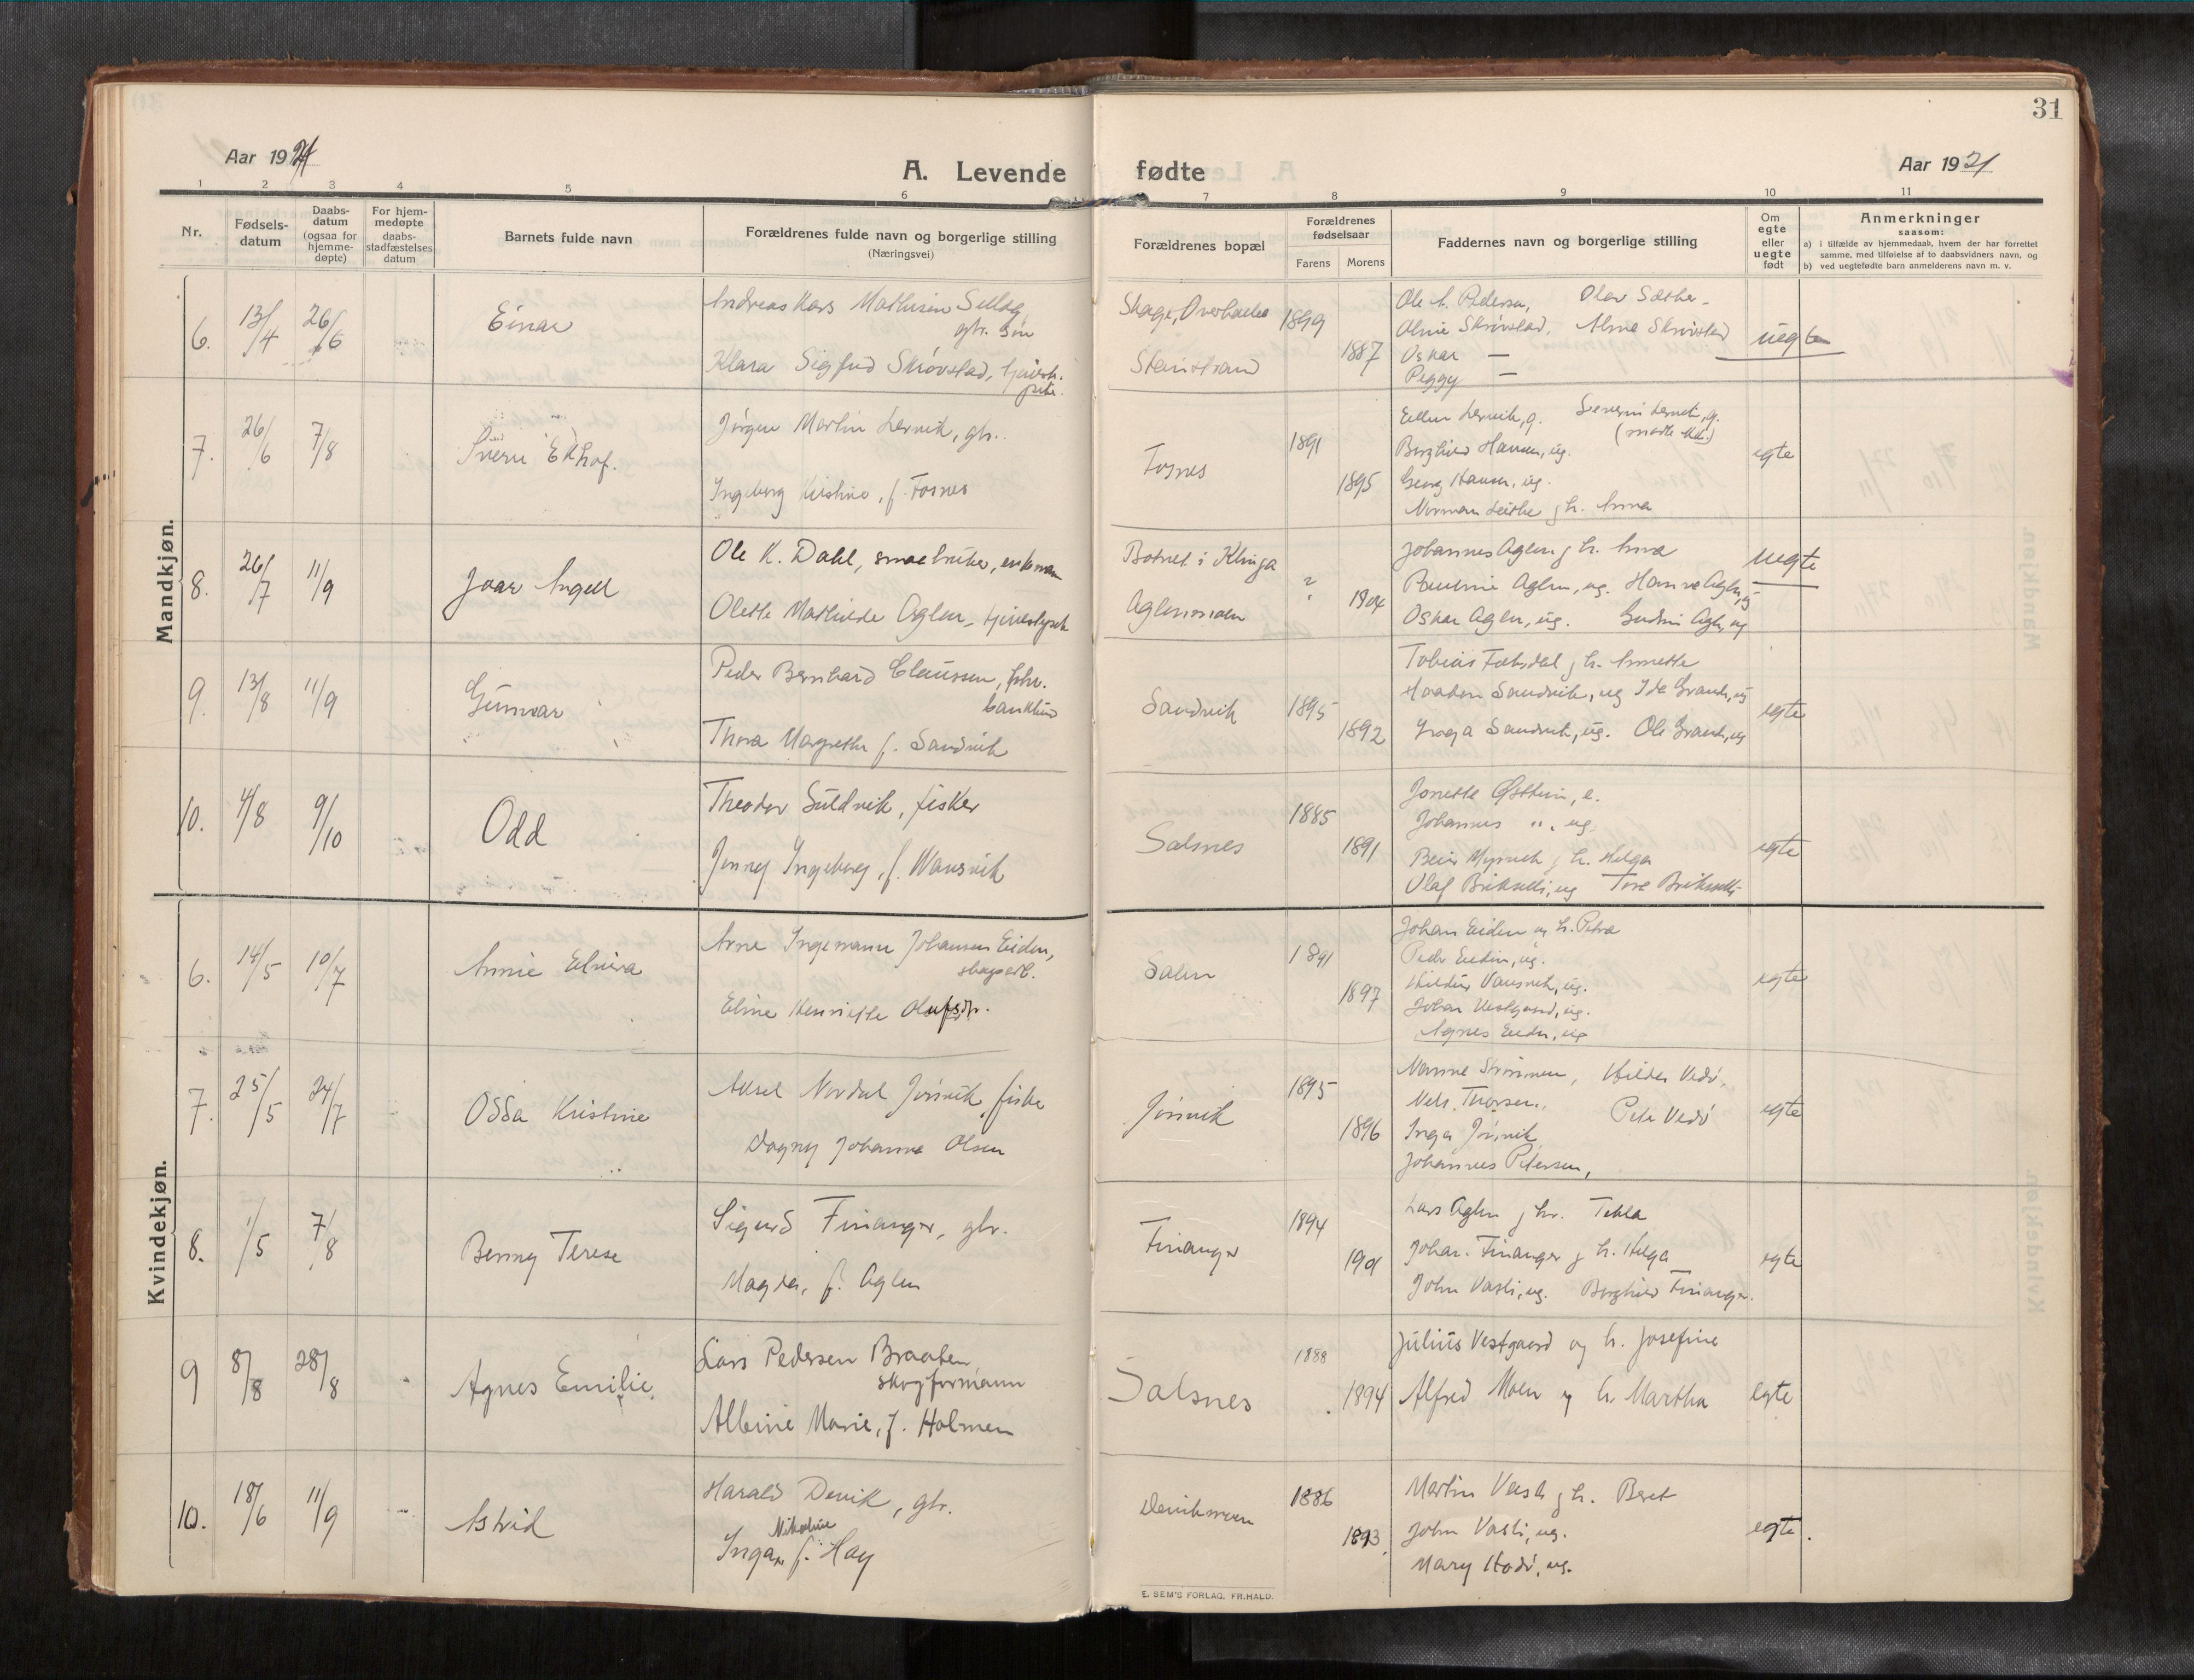 31
Aar 1921
A. Levende fødte
Aar 1921
1 2 3 4 5 6 7 8 9 10 11
Nr.
Fødsels-
datum
Daabs-
datum
(ogsaa for
hjemme-
døpte)
For hjem-
medøpte
daabs-
stadfæstelses
datum
Barnets fulde navn
Forældrenes fulde navn og borgerlige stilling
(Næringsvei)
Forældrenes bopæl
Forældrenes
fødselsaar
Farens Morens
Faddernes navn og borgerlige stilling
Om
egte
eller
uegte
født
Anmerkninger
saasom:
a) i tilfælde av hjemmedaab, hvem der har forrettet
samme, med tilføielse af to daabsvidners navn, og
b) ved uegtefødte barn anmelderens navn m. v.
Mandkjøn.
6. 13/4 26/6 Einar
Andreas Mathisen
gbr. søn
Klara Sigfrid Skrøvstad,
Skage, Overhalla
1899
1887
Ole A. Pedersen, Olav Sæther
Skrøvstad, Alma Skrøvstad
Oskar —
Peggy —
uegte
7. 26/6 7/8 Ekhof.
Jørgen Martin Lervik, gbr.
Ingeborg Kristine, f. Fosnes
Fosnes
1891
1895
Ellen Lervik, g.
Borghild Hansen, ug.
Georg Hansen, ug.
egte
8. 26/7 11/9 Joar Angell
Ole K. Dahl, smaabruker, enkeman
Olette Mathilde Aglen,
Botnet i Klinga
Aglenmoen
?
1904
Johannes Aglen g h. Anna
Pauline Aglen, ug. Hanna Aglen, ug
Oskar Aglen, ug. Gudrun Aglen, ug
uegte
9. 13/8 11/9 Gunnar
Peder Bernhard Claussen, fhv.
Thora Margrethe f. Sandvik
Sandvik
1895
1892
Tobias h. Annette
Haakon Sandvik, ug Ida
Inga Sandvik, ug. Ole
egte
10. 4/8 9/10 Odd
Theodor Suldvik, fisker
Jenny Ingeborg, f. Wansvik
Salsnes
1885
1891
Jonette Østtun, e.
Johannes ", ug
h. Helga
Olaf
egte
Kvindekjøn.
6. 14/5 10/7 Annie Elvira
Arne Ingemann Johansen Eiden,
skogsarb.
Eline Henriette Olufsdr.
Salen
1891
1897
Johan Eiden og h. Petra
Peder Eiden, ug.
Vansvik, ug.
Johan Vestgaard, ug.
Agnes Eiden, ug
egte
7. 25/5 24/7 Odda Kristine
Aksel Nordal Jøsvik, fisker
Dagny Johanna Olsen
Jøsvik
1895
1896
Nanna Hilder Vedø,
Nels Thorsen, Peter Vedø
Inga Jøsvik
Johannes Petersen,
egte
8. 1/5 7/8 Benny Terese
Sigurd Finanger, gbr.
Magda, f. Aglen
Finanger
1894
1901
Lars Aglen g hr. Tekla
Johan Finanger g h. Helga
John Vasli, ug. Borghild Finanger.
egte
9 8/8 28/8 Agnes Emilie.
Lars Pedersen Braaten
skogformann
Albine Marie, f. Holmen
Salsnes
1888
1894
Julius Vestgaard og h. Josefine
Alfred Moen og h. Martha
egte
10. 18/6 11/9 Astrid
Harald Devik, gbr.
Nikoline
Inga, f. Høy
Devikmoen
1886
1893
Martin Vasli g h. Beret
John Vasli, ug.
Mary Hodø, ug.
egte.
E. SEM'S FORLAG, FR.HALD.